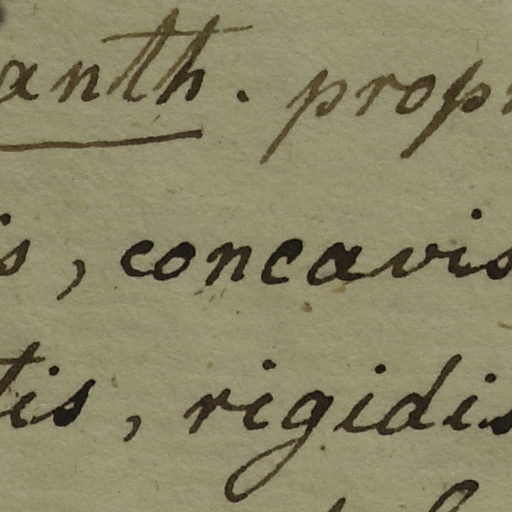 anth. prop
is, concavis
tis, rigidis